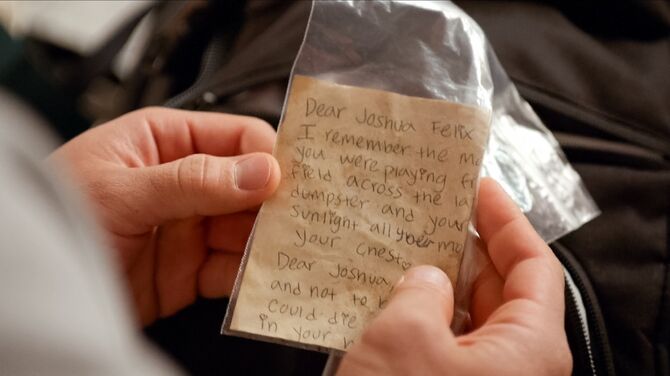 Dear Joshua Felix
I remember the mo
you were playing fr
field across the la
dumpster and your
sunlight all
your chest
Dear Joshua,
and not to
could die
in your